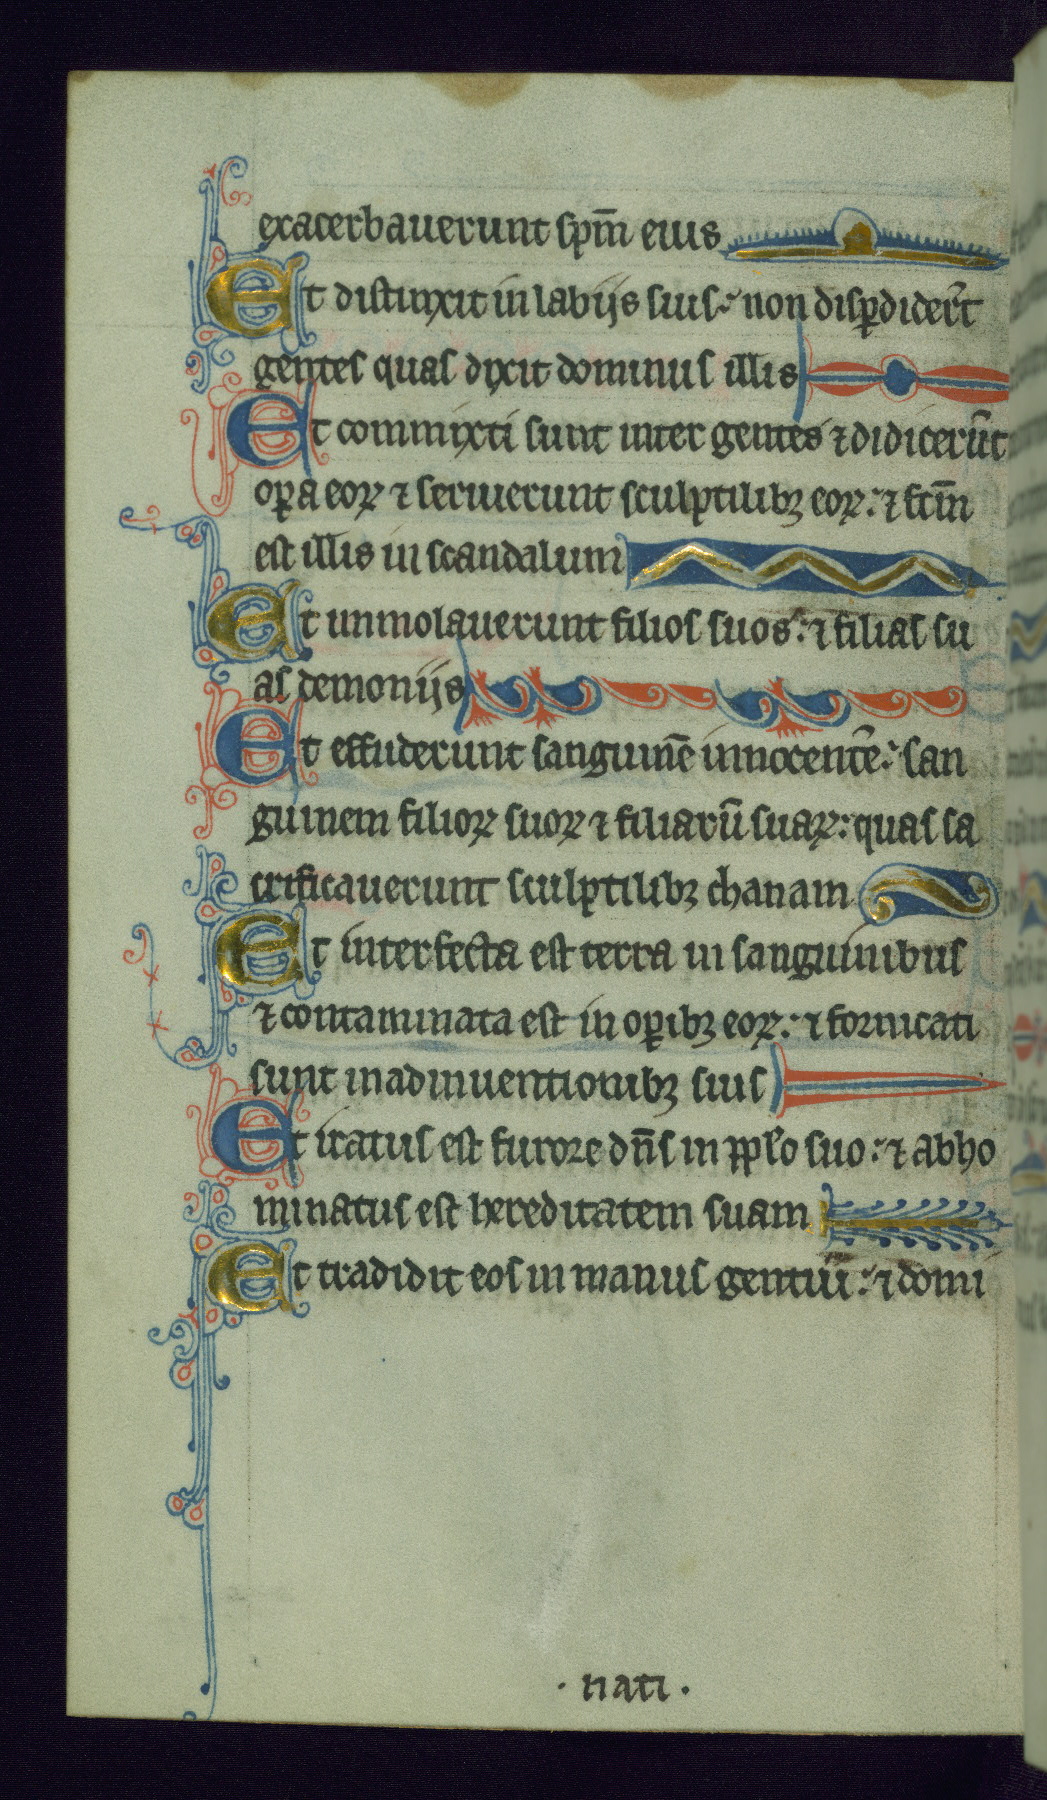 exacerbauerunt sp̄m eius
Et distinxit in labijs suis: non disꝑdider̄t
gentes quas dixit dominus illis
Et commixti sunt inter gentes ⁊ didicerūt
oꝑa eoꝝ ⁊ seruierunt sculptilibꝫ eoꝝ: ⁊ fc̄m
est illis in scandalum
Et immolauerunt filios suos: ⁊ filias su
as demonijs
Et effuderunt sanguinē innocentē: san
guinem filioꝝ suoꝝ ⁊ filiarū suaꝝ: quas sa
crificauerunt sculptilibꝫ chanaam
Et interfecta est terra in sanguinibus
⁊ contaminata est in oꝑibꝫ eoꝝ: ⁊ fornicati
sunt in adinuentionibꝫ suis
Et iratus est furore dn̄s in pplo suo: ⁊ abho
minatus est hereditatem suam
Et tradidit eos in manus gentiū: ⁊ domi
· nati ·